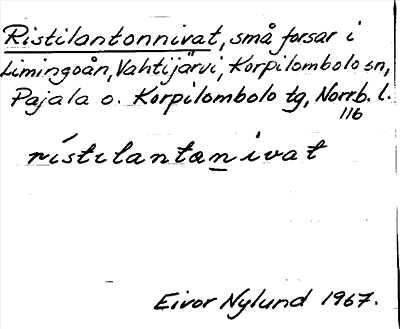 Ristilantonnivat, små forsar i
Limingoån, Vahtijärvi, Korpilombolo sn,
Pajala o. Korpilombolo tg, Norrb. l.
116
rístilantanivat
Eivor Nylund 1967.